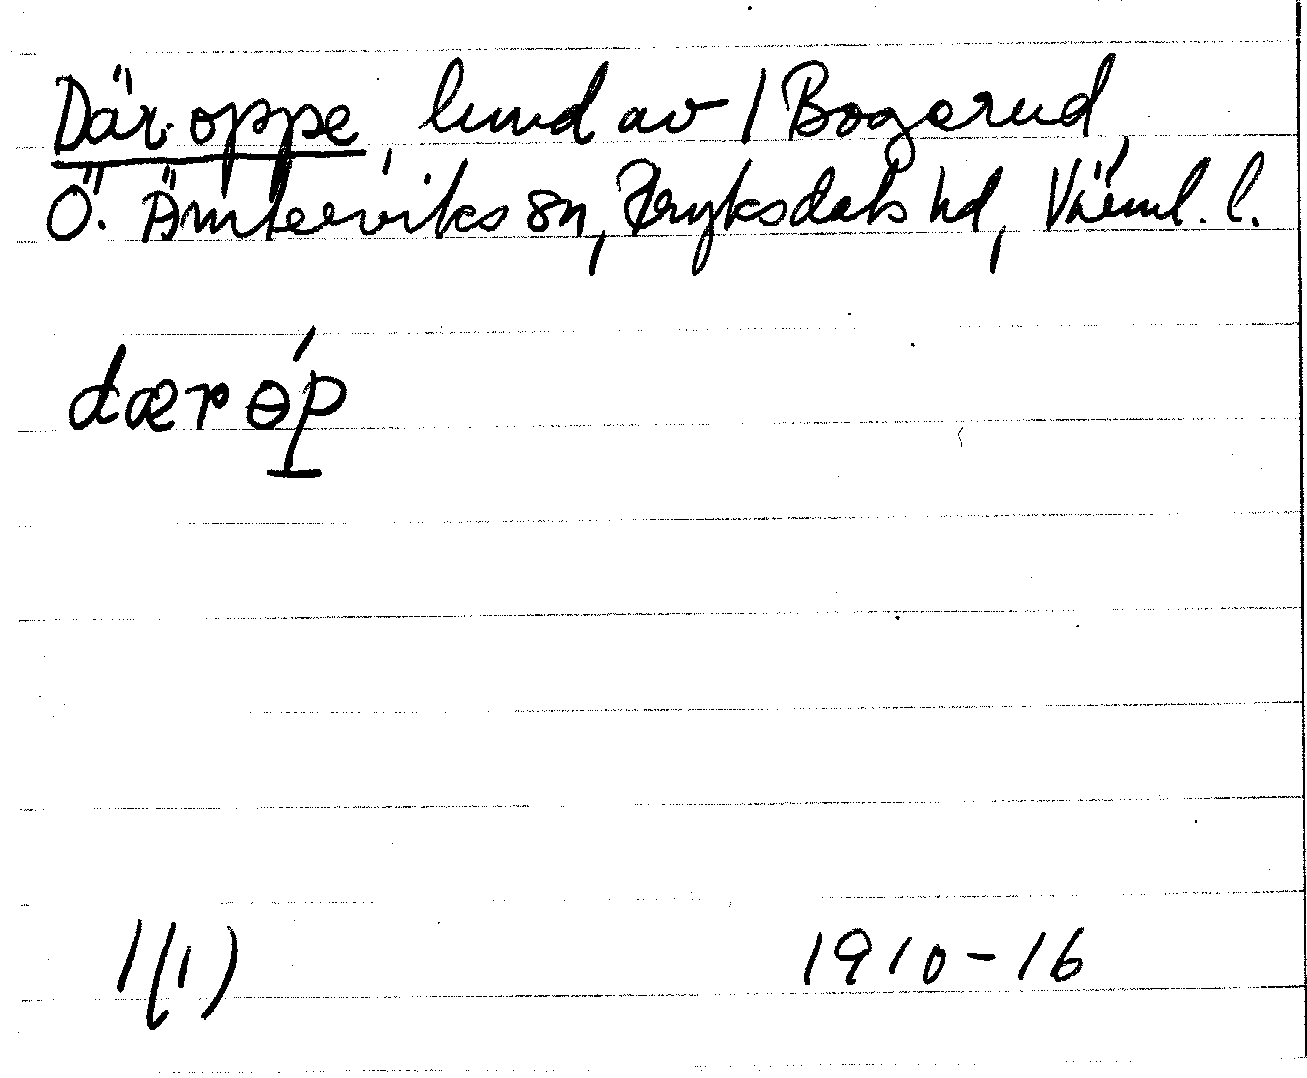 Där oppe, lund av 1 Bogerud,
Ö. Ämterviks sn, Fryksdals hd, Värml. l.
dær ɵ́p
1(1)
1910-16